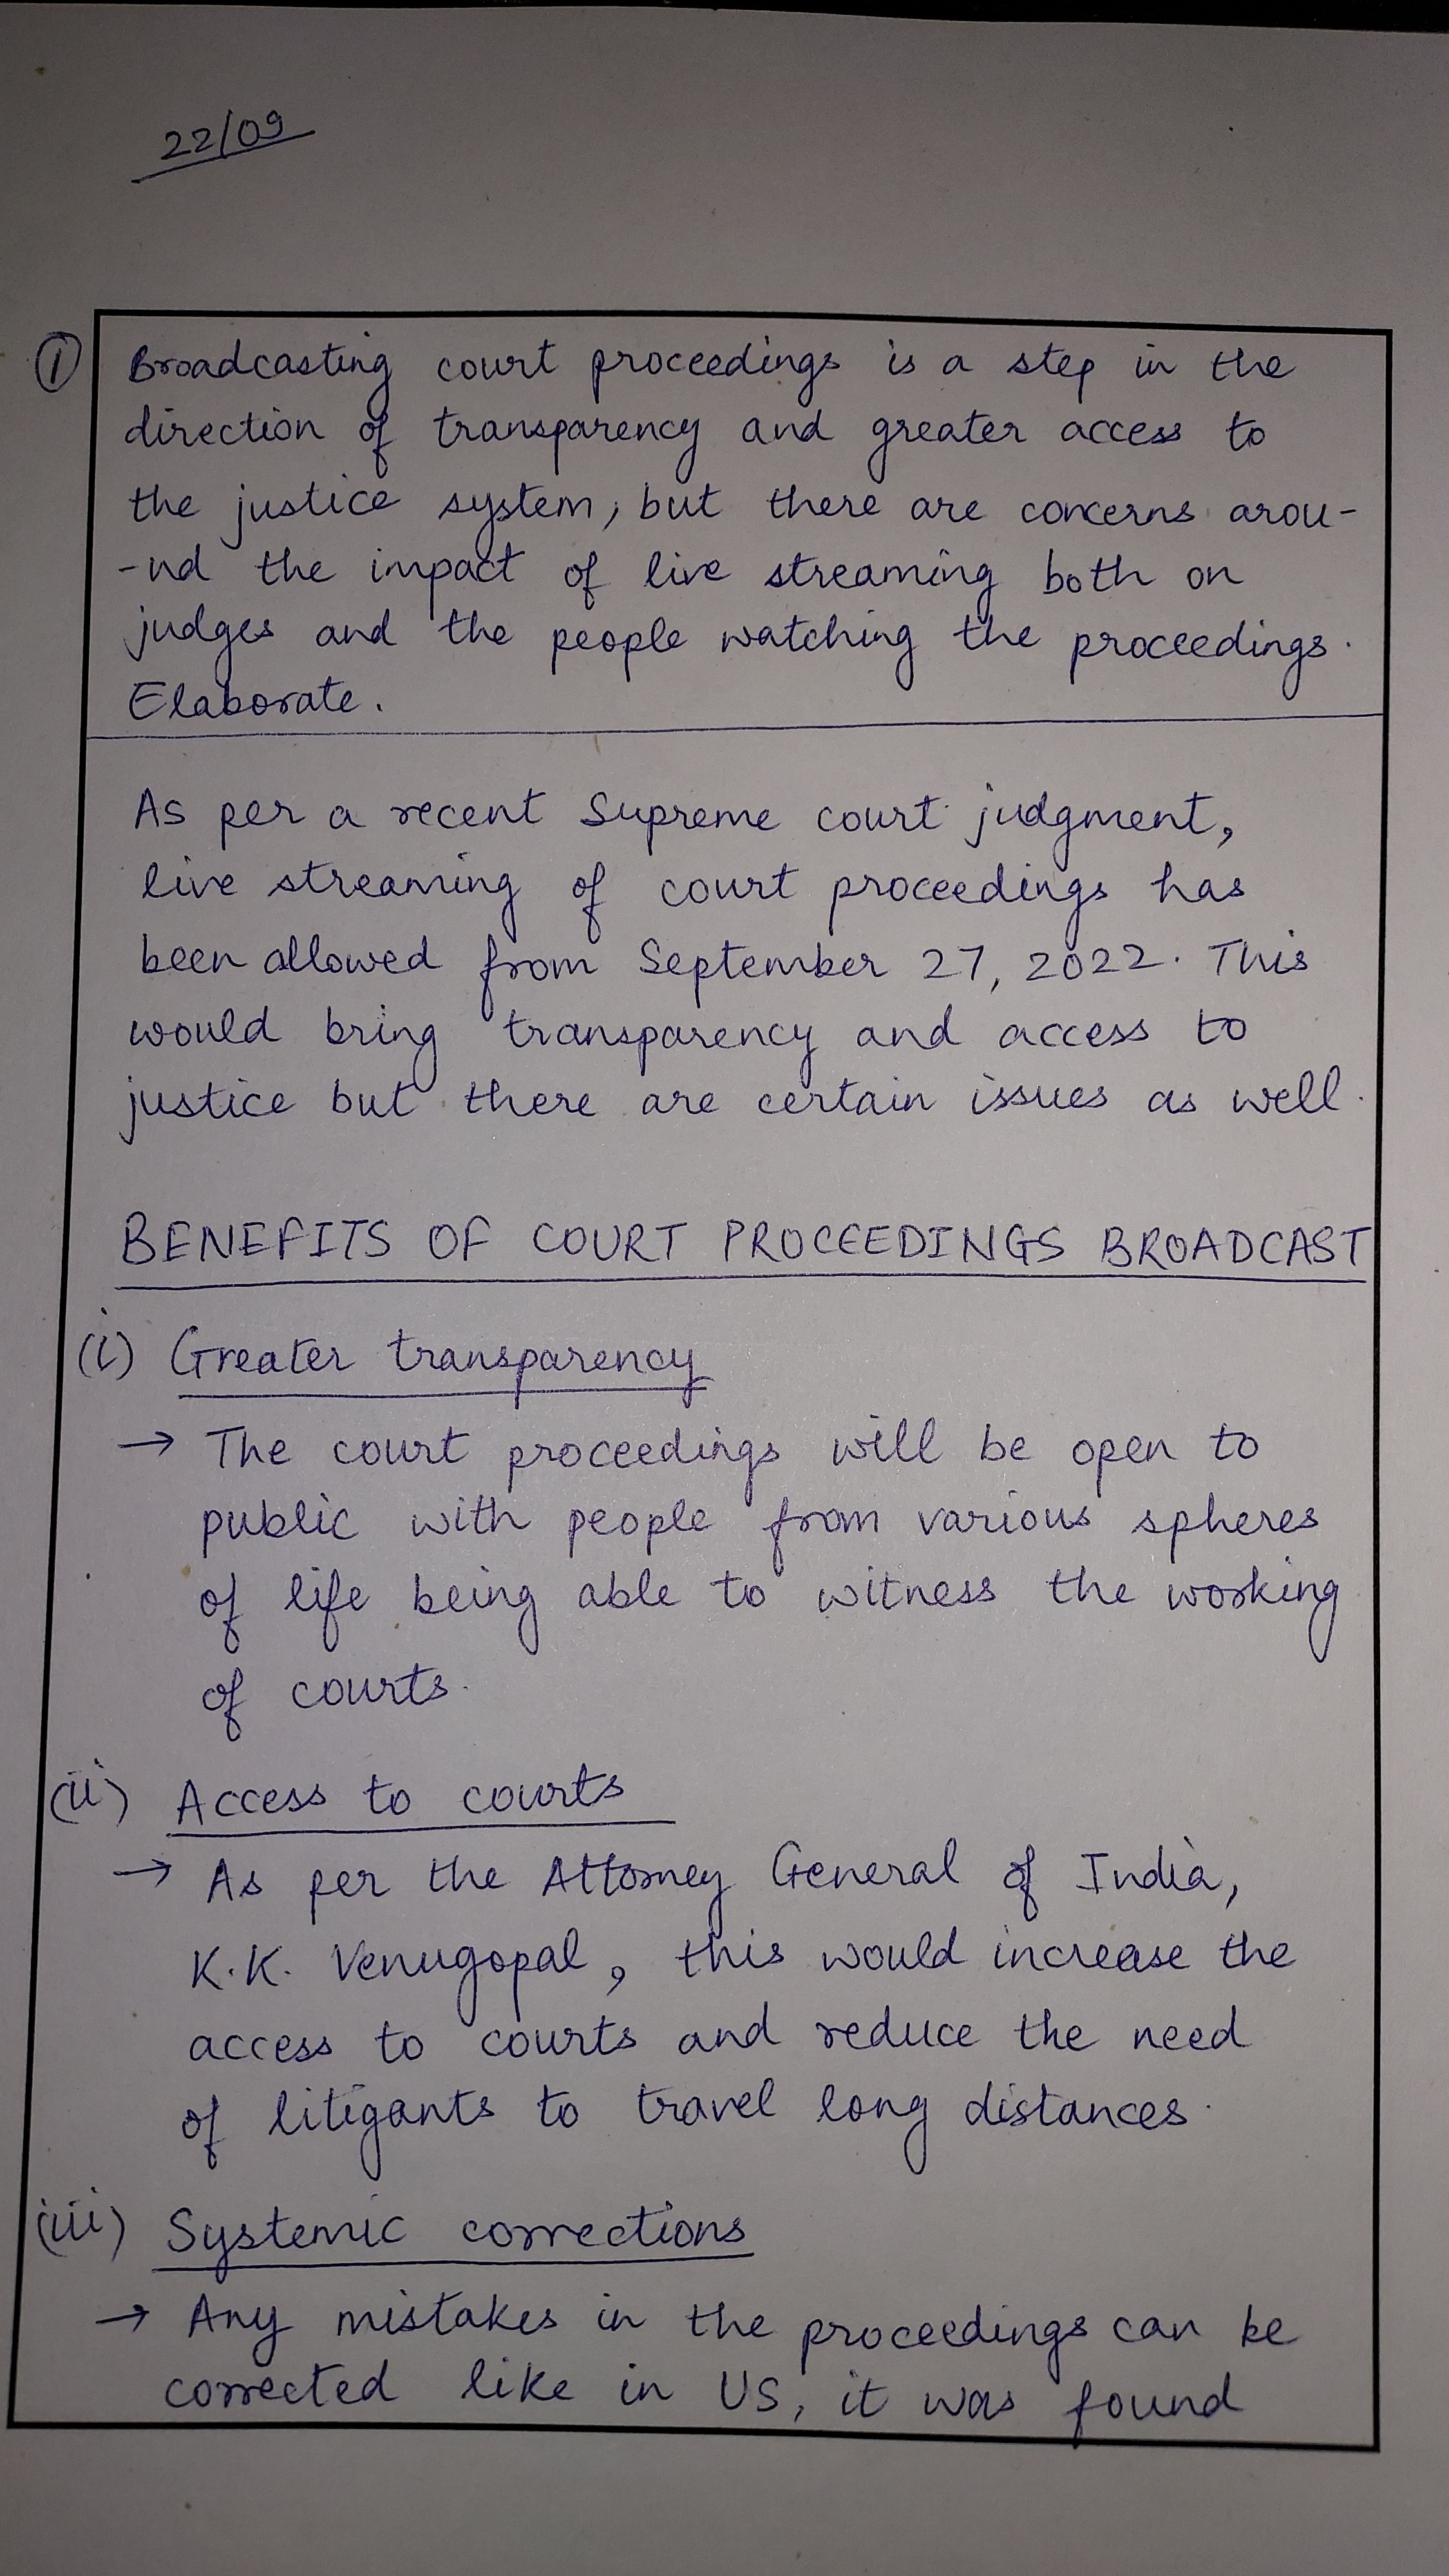 22/09
① Broadcasting court proceedings is a step in the
direction of transparency and greater access to
the justice system, but there are concerns arou-
-nd the impact of live streaming both on
judges and the people watching the proceedings.
Elaborate.
As per a recent Supreme court judgment,
live streaming of court proceedings has
been allowed from September 27, 2022. This
would bring transparency and access to
justice but there are certain issues as well.
BENEFITS OF COURT PROCEEDINGS BROADCAST
(i) Greater transparency
→ The court proceedings will be open to
public with people from various spheres
of life being able to witness the working
of courts.
(ii) Access to courts
→ As per the Attorney General of India,
K.K. Venugopal, this would increase the
access to courts and reduce the need
of litigants to travel long distances.
(iii) Systemic corrections
→ Any mistakes in the proceedings can be
corrected like in US, it was found